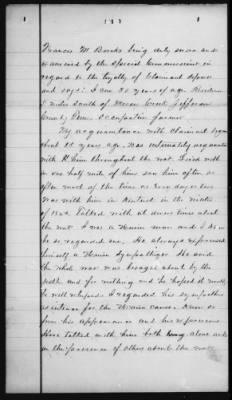 Francis M. Banks being duly sworn and
examined by the special Commissioner in
regard to the loyalty of Claimant deposes
and says: I am 35 years of age. Residence
5 miles South of Mossy Creek Jefferson
County Tenn. Occupation farmer.
My acquaintance with Claimant began
about 15 years ago. Was intimately acquainted
with him throughout the war. Lived with
in one half mile of him saw him often as
often most of the time as two days or two
Was with him in Kentucky in the winter
of 1862 talked with at divers times about
the war I was a Union man and I
he so regarded me. He always expressed
himself a Union Sympathizer. He said
the whole war was brought about by the
and for nothing and he hoped it would
be well whipped. I regarded his sympathies
as intense for the Union cause. Knew so
from his appearance and his expressions
Have talked with him both alone and
in the presence of others about the war